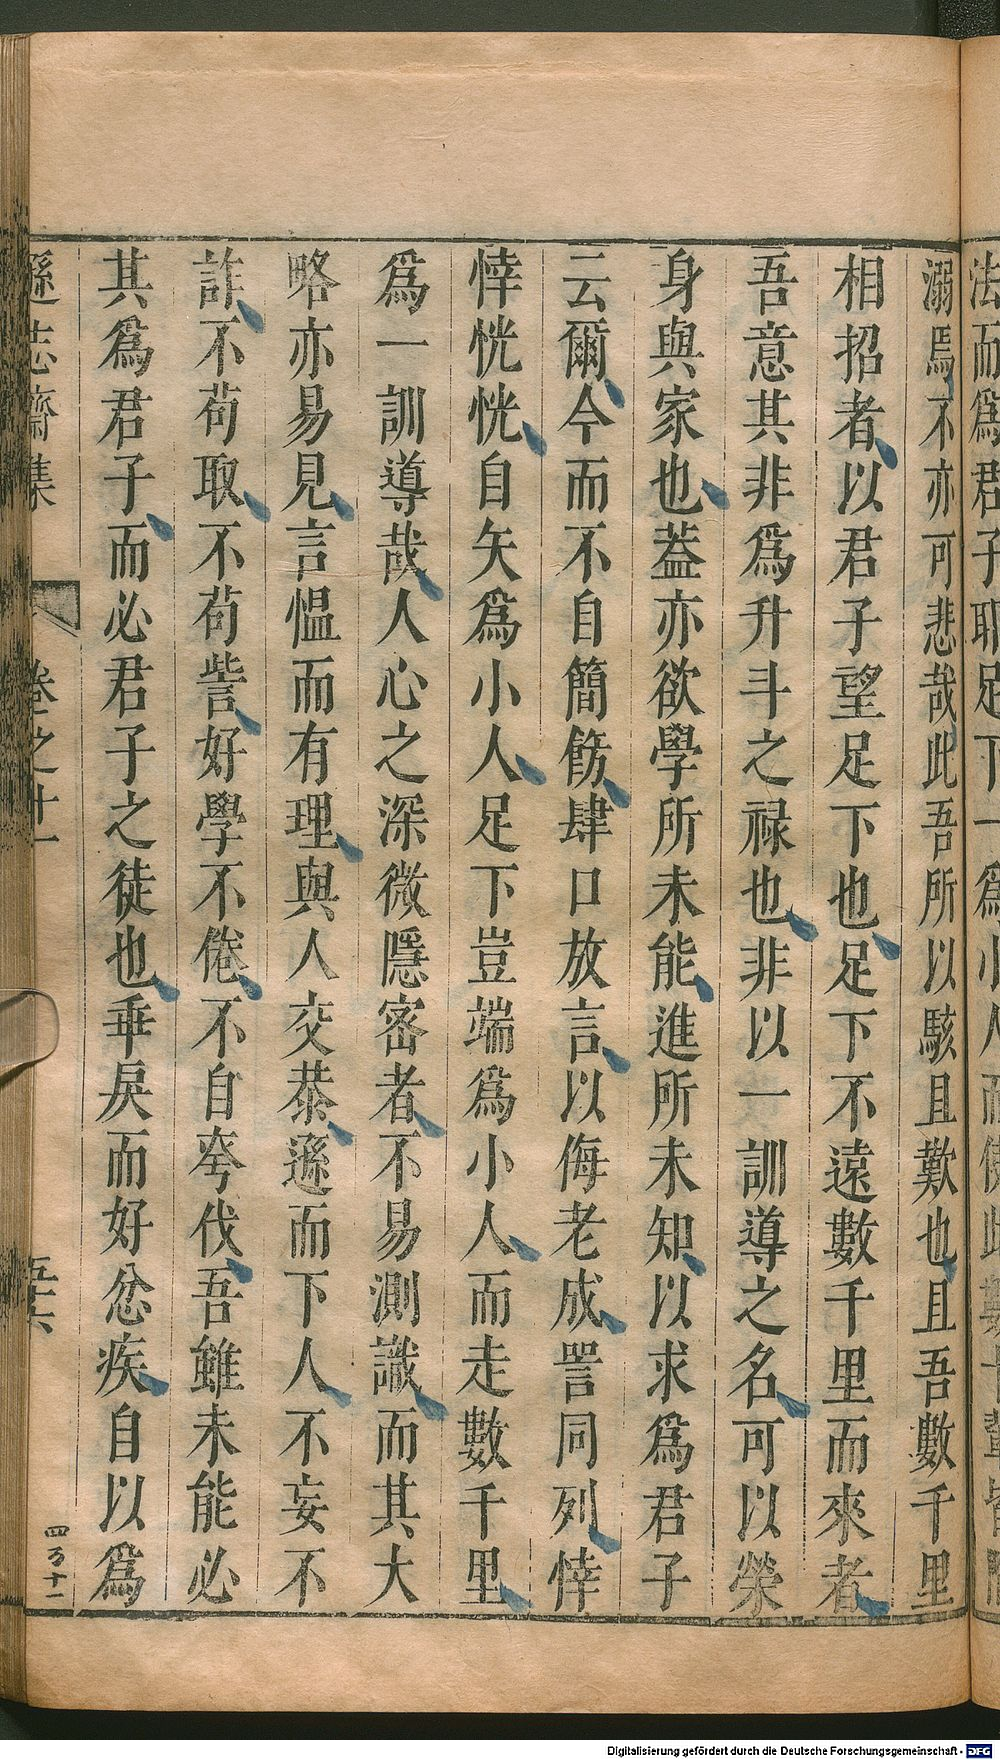 法而爲君子耶足下一爲小人而使此數十輩皆陷
溺焉不亦可悲哉此吾所以駭且歎也且吾數千里
相招者以君子望足下也足下不遠數千里而來者
吾意其非爲升斗之禄也非以一訓導之名可以榮
身與家也葢亦欲學所未能進所未知以求爲君子
云爾今而不自簡飭肆口放言以侮老成詈同列悻
悻恍恍自矢爲小人足下豈端爲小人而走數千里
爲一訓導哉人心之深微隱宻者不易測識而其大
略亦易見言愠而有理與人交恭遜而下人不妄不
詐不苟取不苟訾好學不倦不自夸伐吾雖未能必
其爲君子而必君子之徒也乖戾而好忿疾自以爲
遜志齋集 卷之十一 五六
四百十一
Digitalisierung gefördert durch die Deutsche Forschungsgemeinschaft - DFG